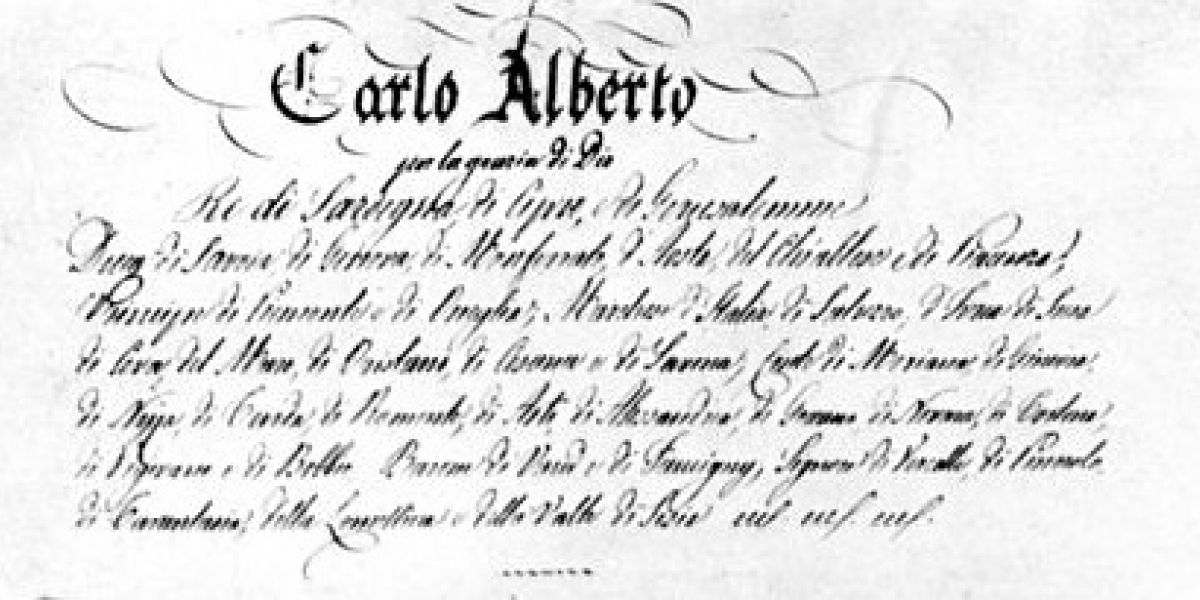 Carlo Alberto
per la grazia di Dio
Re di Sardegna, di Cipro, e di Gerusalemme
Duca di Savoia, di Genova, di Monferrato, d'Aosta, del Chiablese e di Piacenza;
Principe di Piemonte e di Oneglia; Marchese d'Italia, di Saluzzo, d'Ivrea di Susa
di Ceva, del Maro, di Oristano, di Cesana e di Savona; Conte di Moriana di Ginevra
di Nizza, di Tenda, di Romonte, di Asti di Alessandria, di Goceano di Novara, di Tortona
di Vigevano e di Bobbio Barone di Vaud e di Faucigny, Signore di Vercelli, di Pinerolo
di Tarantasia, della Lomellina e della Valle di Sesia